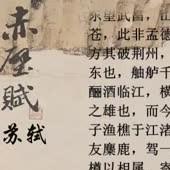 赤壁賦
苏轼
东望武昌，
苍，此非孟德
方其破荆州，
东也，舳舻千
酾酒临江，横
之雄也，而今
子渔樵于江渚
友麋鹿，驾一
樽以相属。寄